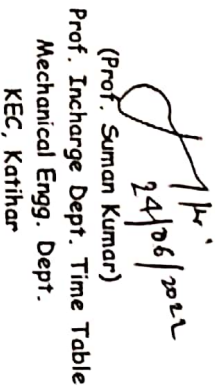 24/06/2022
(Prof. Suman Kumar)
Prof. Incharge Dept. Time Table
Mechanical Engg. Dept.
KEC, Katihar